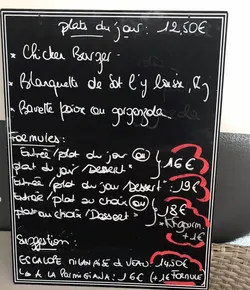 plats du jour : 12,50€
* Chicken Burger
* Blanquette de sot l'y laisse,
* Bavette poivre ou gorgonzola
Formules :
Entrée/plat du jour ou
plat du jour/Dessert } 16€
Entrée/plat du jour/Dessert : 19€
Entrée/plat au choix ou
plat au choix/Dessert } 18€
+1€
Suggestion :
ESCALOPE MILANAISE DE VEAU : 14,50€
A LA PARMIGIANA : 16€ (+1€ FORMULE)